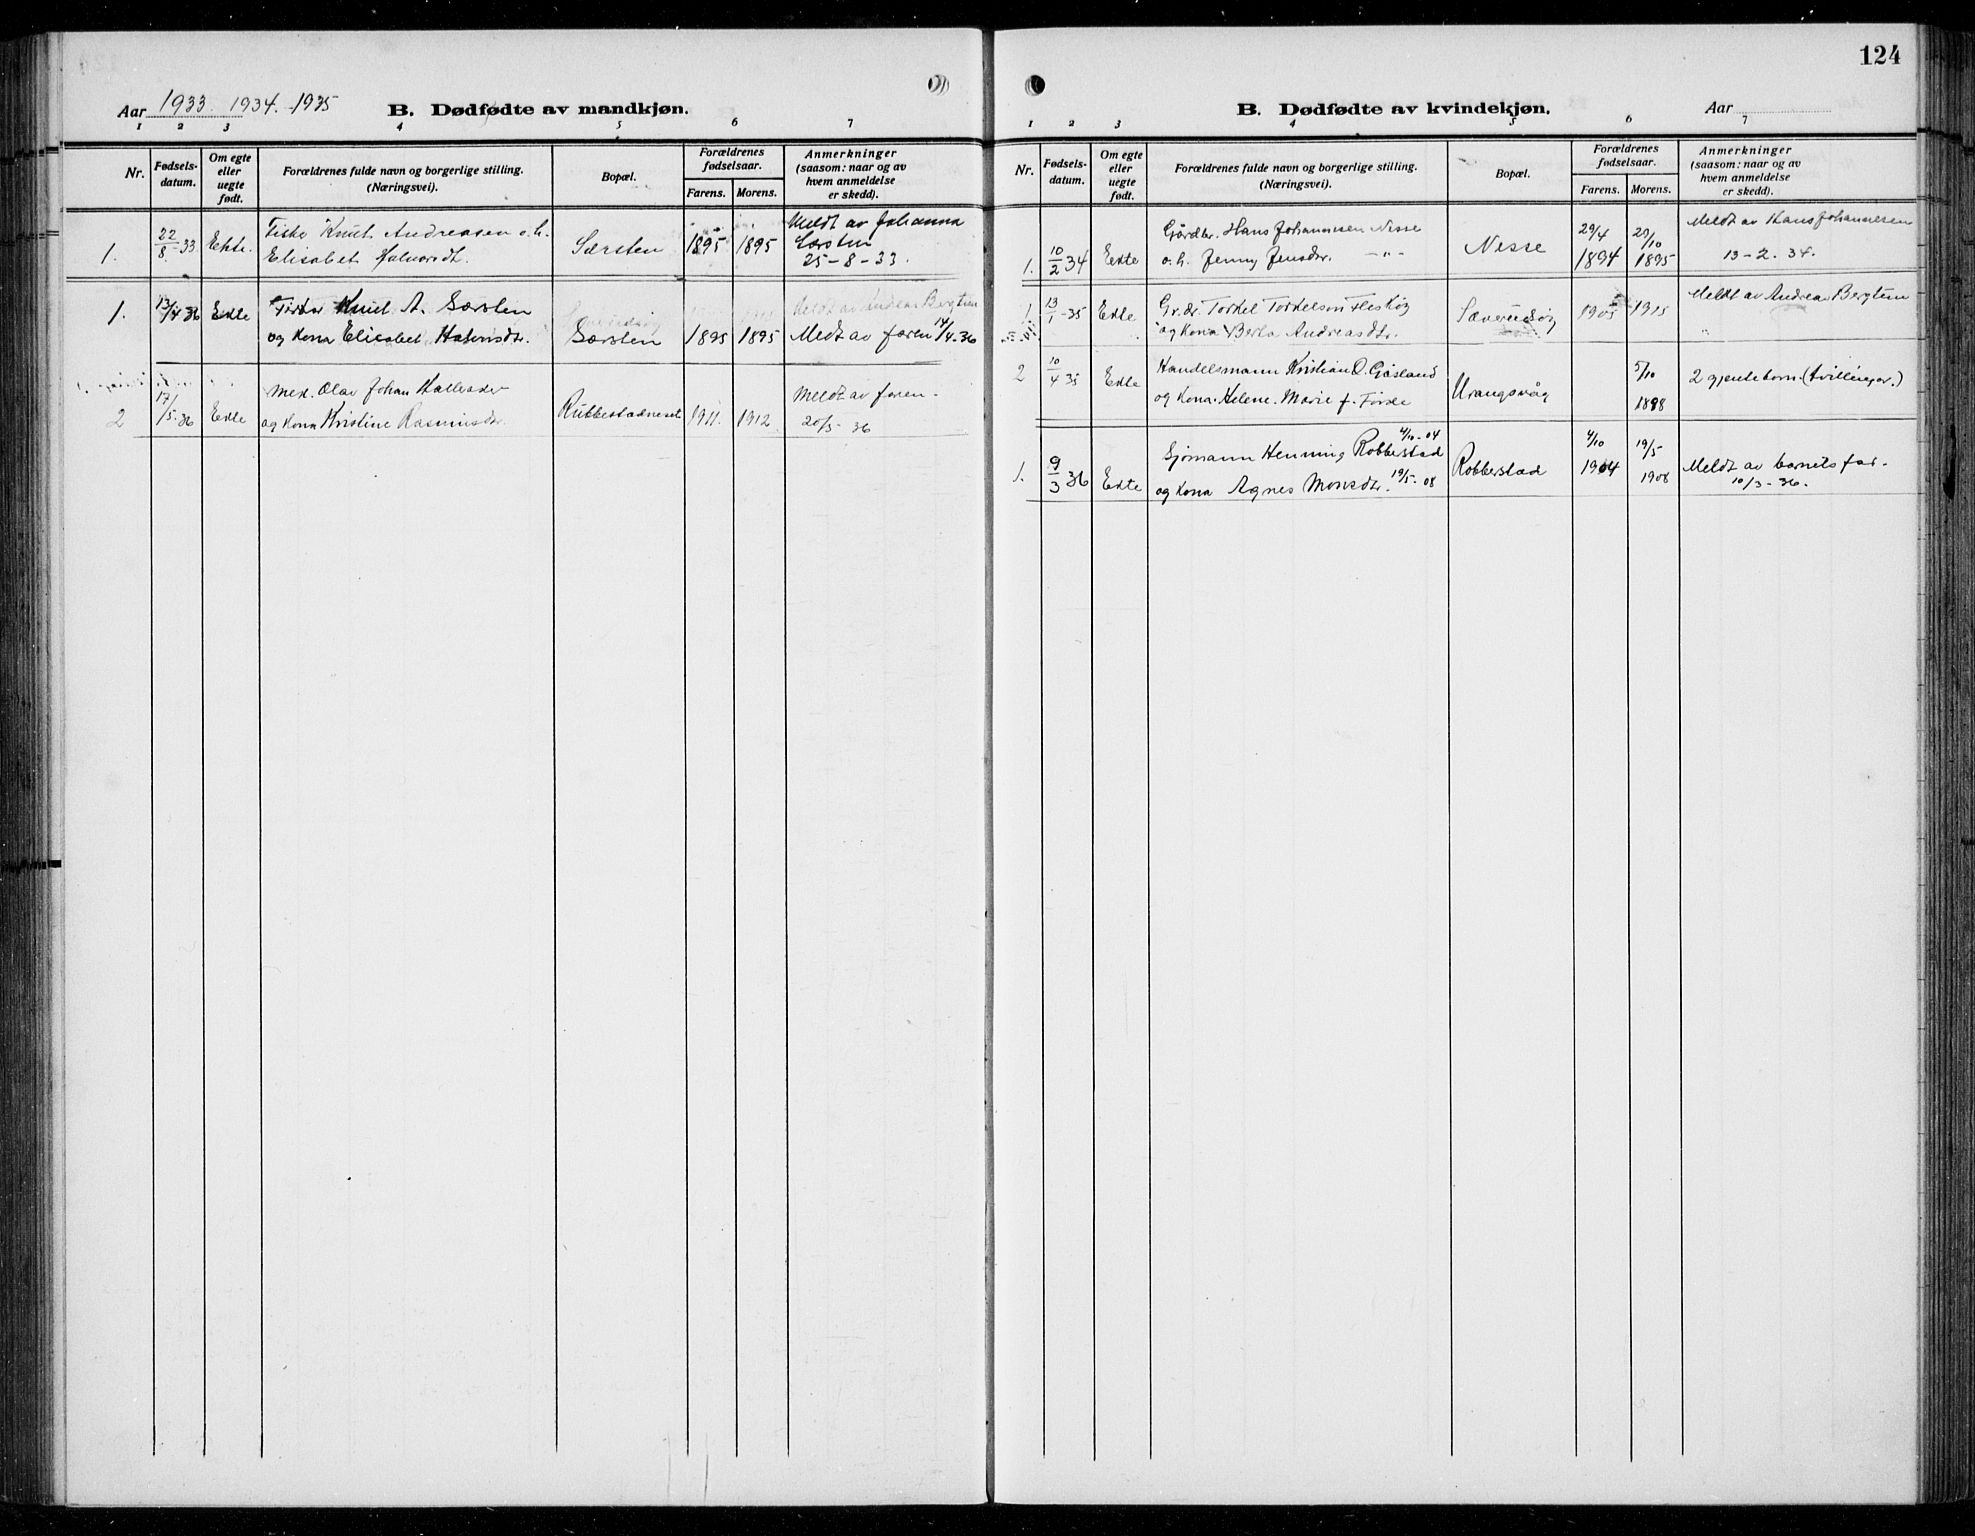 Aar 1933. 1934. -1935
B. Dødfødte av mandkjøn.
1 2 3 4 5 6 7
Nr.
Fødsels-
datum.
Om egte
eller
uegte
født.
Forældrenes fulde navn og borgerlige stilling.
(Næringsvei).
Bopæl.
Forældrenes
fødselsaar.
Farens. Morens.
Anmerkninger
(saasom: naar og av
hvem anmeldelse
er skedd).
1. 22/8-33 Ekte. Fiske Knut Andreasen o.h. Særsten 1895 1895 Meldt av Johanna
Elisabet Halvorsdt. Særsten
25-8-33.
1. 13/4 36 Ekte Fisker Knut A. Særsten
og Kona Elisabet Særsten 1895 1895 Meldt av faren 14/4-36
2 17/5-36 Ekte Olav Johan
og Kona Kristine Rasmusdtr. Rubbestadneset 1911. 1912. Meldt av faren-
20/5-36
124
B. Dødfødte av kvindekjøn.
Aar
1 2 3 4 5 6 7
Nr.
Fødsels-
datum.
Om egte
eller
uegte
født.
Forældrenes fulde navn og borgerlige stilling.
(Næringsvei).
Bopæl.
Forældrenes
fødselsaar.
Farens. Morens.
Anmerkninger
(saasom: naar og av
hvem anmeldelse
er skedd).
1. 10/2 34 Ekte Gårdbr. Hans Johannesen Nesse Nesse 29/4 1894 20/10 1895 Meldt av Hans Johannesen
o.h. Jenny Jensdtr. -"- 13-2. 34.
1 13/1-35 Ekte Gr.dr. Torkel Torkelson 1905 1915 Meldt av Andrea Bergtun
og Kona Berta Andreasdtr.
2 10/4 35 Ekte Handelsmann Kristian O. Gåsland Urangsvåg 5/10 1898 2 gjenteborn. (tvillingar.)
og Kona. Helene. Marie f. Førde
1. 9/3 36 Ekte Sjømann Henning Robberstad 4/10-04 Robberstad 4/10 1904 19/5 1908 Meldt av barnets far.
og Kona Agnes Monsdtr. 19/5-08 10/3-36.